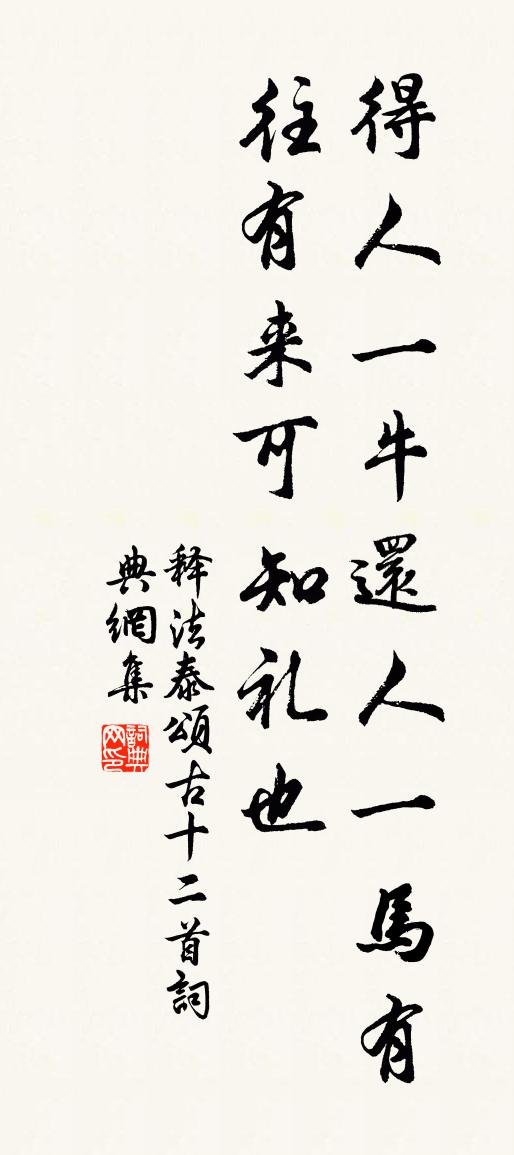 得人一牛還人一馬有
往有来可知礼也
释法泰頌古十二首詞
典網集
詞典网印